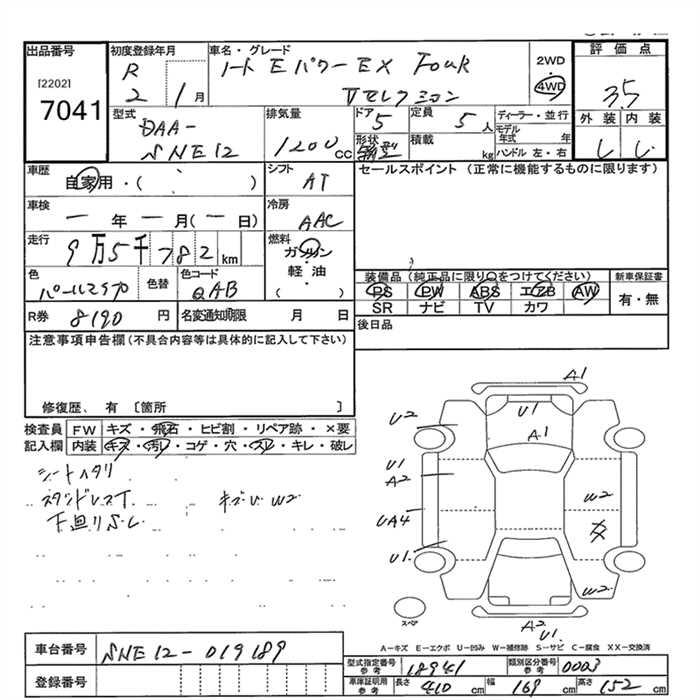 出品番号
[2202]
7041
初度登録年月
R
2 1月
車名・グレード
ノート Eパワー EX Four
Vセレクション
2WD
4WD
評価点
3.5
外装 内装
型式
DAA-
SNE12
排気量
1200 CC
ドア 5
形状
定員 5人
積載 kg
ディーラー・並行
モデル年式 年
ハンドル 左・右
車歴
自家用・( )
シフト
AT
セールスポイント (正常に機能するものに限ります)
車検
ー年ー月(ー日)
冷房
AAC
走行
9万5千782km
燃料
ガソリン
軽油
( )
色
色替
色コード
QAB
装備品(純正品に限り○をつけてください)
新車保証書
PS PW ABS エアB AW
SR ナビ TV カワ
有・無
R券 8190円
名変通知期限 月 日
後日品
注意事項申告欄(不具合内容等は具体的に記入して下さい)
修復歴、有〔箇所 〕
検査員 FW キズ・飛石・ヒビ割・リペア跡・×要
記入欄 内装 キズ・汚れ・コゲ・穴・スレ・キレ・破レ
シートヘタリ
スタンドレスT キズU W2
下廻りS.U
A1
U2
U1
A1
U1
A2
W2
UA4
U1
W2
スペア
A2
U1
A−キズ E−エクボ U−凹み W−補修跡 S−サビ C−腐食 XX−交換済
車台番号 SNE12-019189
登録番号
型式指定番号 参考 18941
類別区分番号 参考 0003
車庫証明用 参考 長さ 410 cm 幅 169 cm 高さ 152 cm